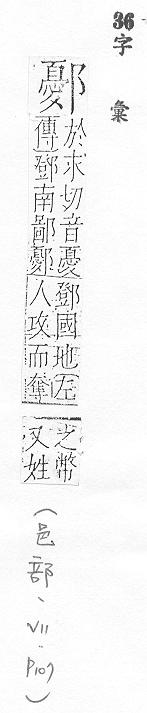 36字彙
鄾
於求切音憂鄧國地左
傳鄧南鄙鄾人攻而奪
之幣
又姓
(邑部、VII:P107)